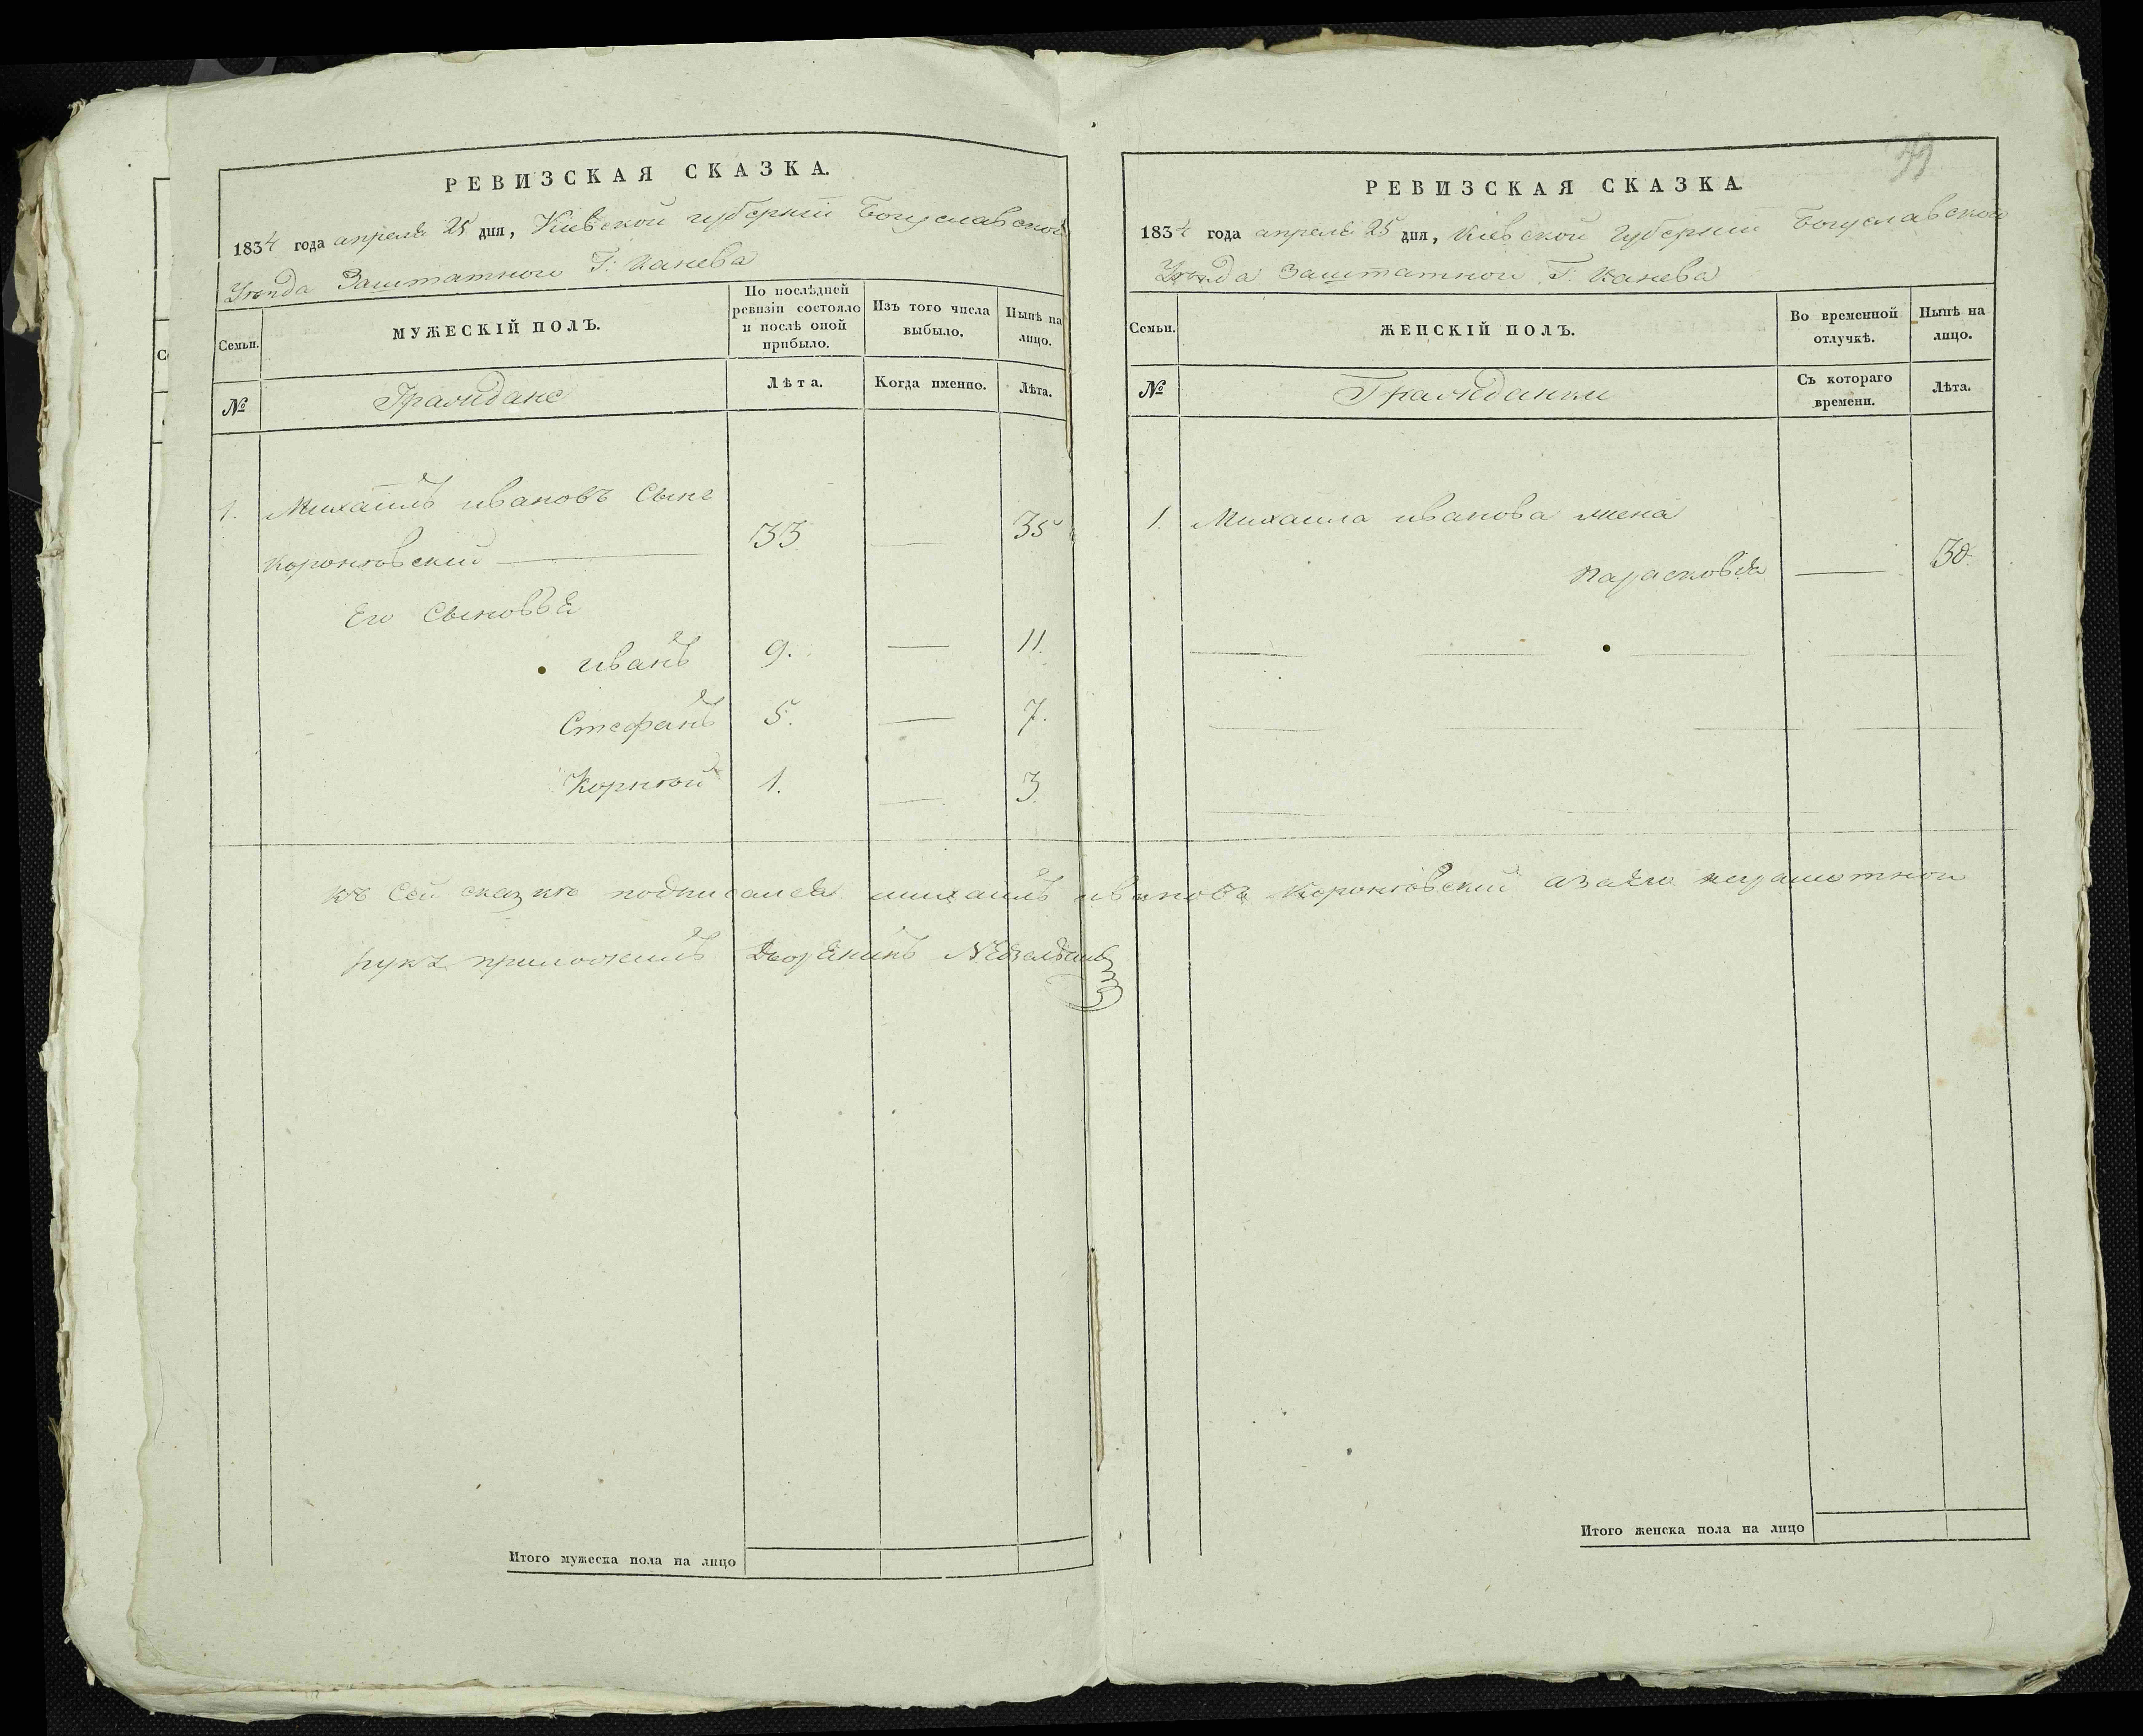 РЕВИЗСКАЯ СКАЗКА.
1834 года апреля 25 дня, Кіевской губерніи Богуславского
Уѣзда Заштатного Г: Канева
Семьи.
МУЖЕСКІЙ ПОЛЪ.
По послѣдней ревизіи состояло и послѣ оной прибыло.
Изъ того числа выбыло.
Нынѣ на лицо.
№
Граждане
Лѣта.
Когда именно.
Лѣта.
1. Михаилъ ивановъ Сынъ
33 — 35
Его Сыновья
иванъ 9. — 11.
Стефанъ 5. — 7.
Корнѣй 1. — 3.
къ Сей сказкѣ подписался михаилъ ивановъ
неграмотного
руку приложилъ Дворянинъ
Итого мужеска пола на лицо
39
РЕВИЗСКАЯ СКАЗКА.
1834 года апреля 25 дня, Кіевской Губерніи Богуславского
Уѣзда Заштатного Г: Канева
Семьи.
ЖЕНСКІЙ ПОЛЪ.
Во временной отлучкѣ.
Нынѣ на лицо.
№
Гражданки
Съ котораго времени.
Лѣта.
1. Михаила иванова жена
Парасковія — 30.
Итого женска пола на лицо